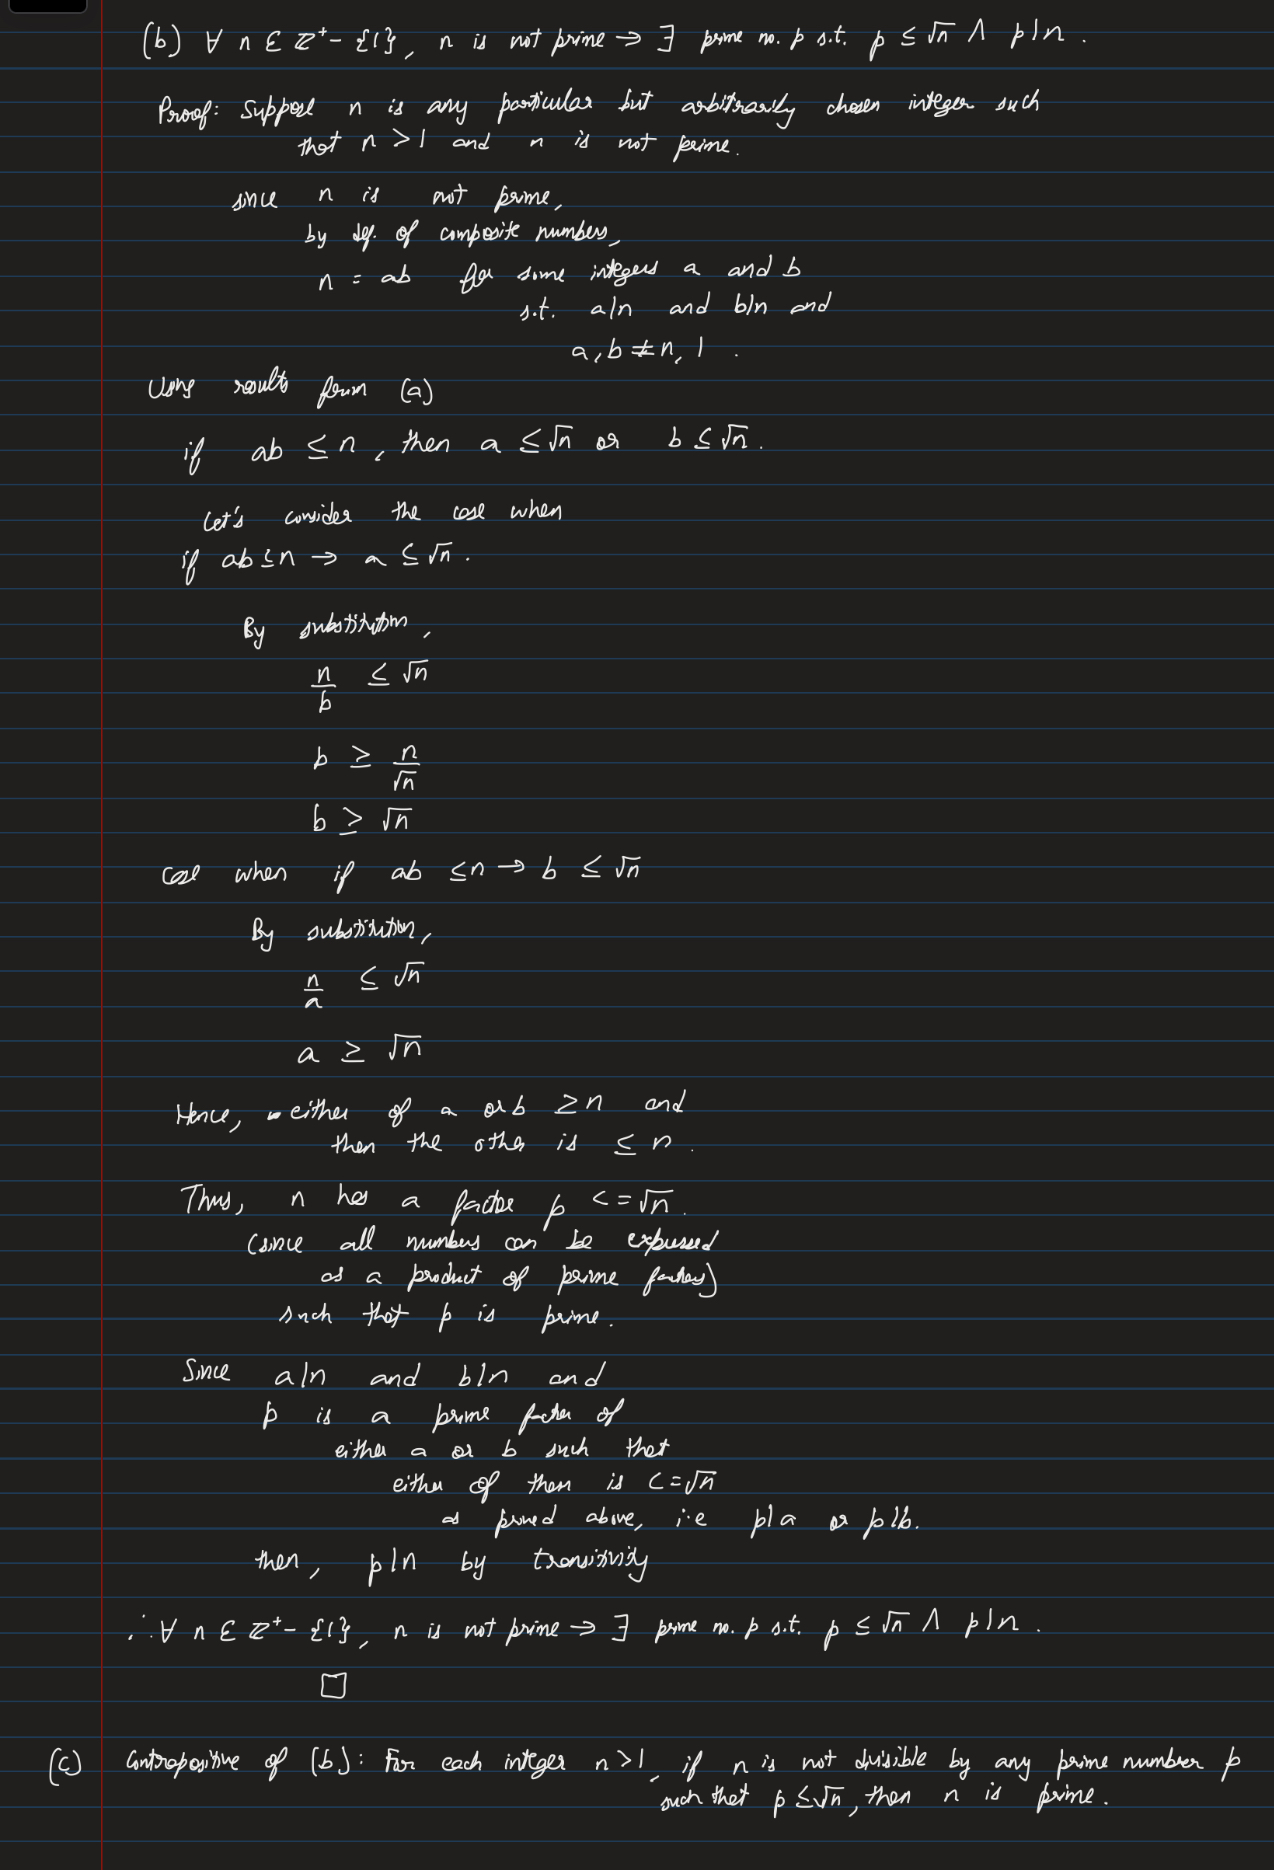 (b) ∀ n ∈ Z⁺ - {1}, n is not prime → ∃ prime no. p s.t. p ≤ √n ∧ p|n.
Proof: Suppose n is any particular but arbitrarily chosen integer such
that n > 1 and n is not prime.
since n is not prime,
by def. of composite numbers,
n = ab for some integers a and b
s.t. a|n and b|n and
a, b ≠ n, 1.
Using results from (a)
if ab ≤ n, then a ≤ √n or b ≤ √n.
Let's consider the case when
if ab ≤ n → a ≤ √n.
By substitution,
n/b ≤ √n
b ≥ n/√n
b ≥ √n
Case when if ab ≤ n → b ≤ √n
By substitution,
n/a ≤ √n
a ≥ √n
Hence, either of a or b ≥ n and
then the other is ≤ n.
Thus, n has a factor p <= √n.
(since all numbers can be expressed
as a product of prime factors)
such that p is prime.
Since a|n and b|n and
p is a prime factor of
either a or b such that
either of them is <= √n
as proved above, i.e p|a or p|b.
then, p|n by transitivity
∴ ∀ n ∈ Z⁺ - {1}, n is not prime → ∃ prime no. p s.t. p ≤ √n ∧ p|n.
□
(c) Contrapositive of (b): For each integer n > 1, if n is not divisible by any prime number p
such that p ≤ √n, then n is prime.